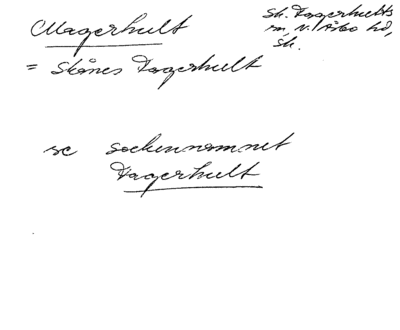 Magerhult
Sk. Fagerhults
sn, N. Åsbo hd,
Sk.
= Skånes Fagerhult
se sockennamnet
Fagerhult